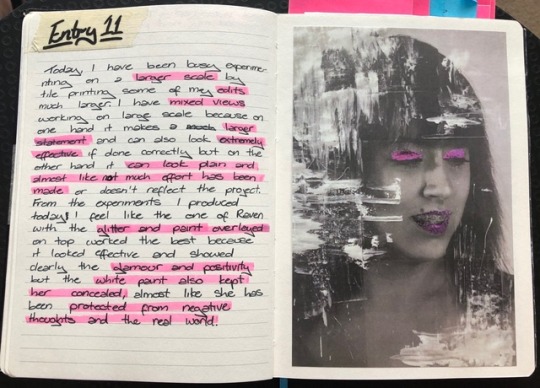 Entry 11
Today I have been busy experime-
nting on a larger scale by
tile printing some of my edits
much larger. I have mixed views
working on large scale because on
one hand it makes a much larger
statement and can also look extremely
effective if done correctly but on the
other hand it can look plain and
almost like not much effort has been
made or doesn't reflect the project.
From the experiments I produced
today I feel like the one of Raven
with the glitter and paint overlayed
on top worked the best because
it looked effective and showed
clearly the glamour and positivity
but the white paint also kept
her concealed, almost like she has
been protected from negative
thoughts and the real world.